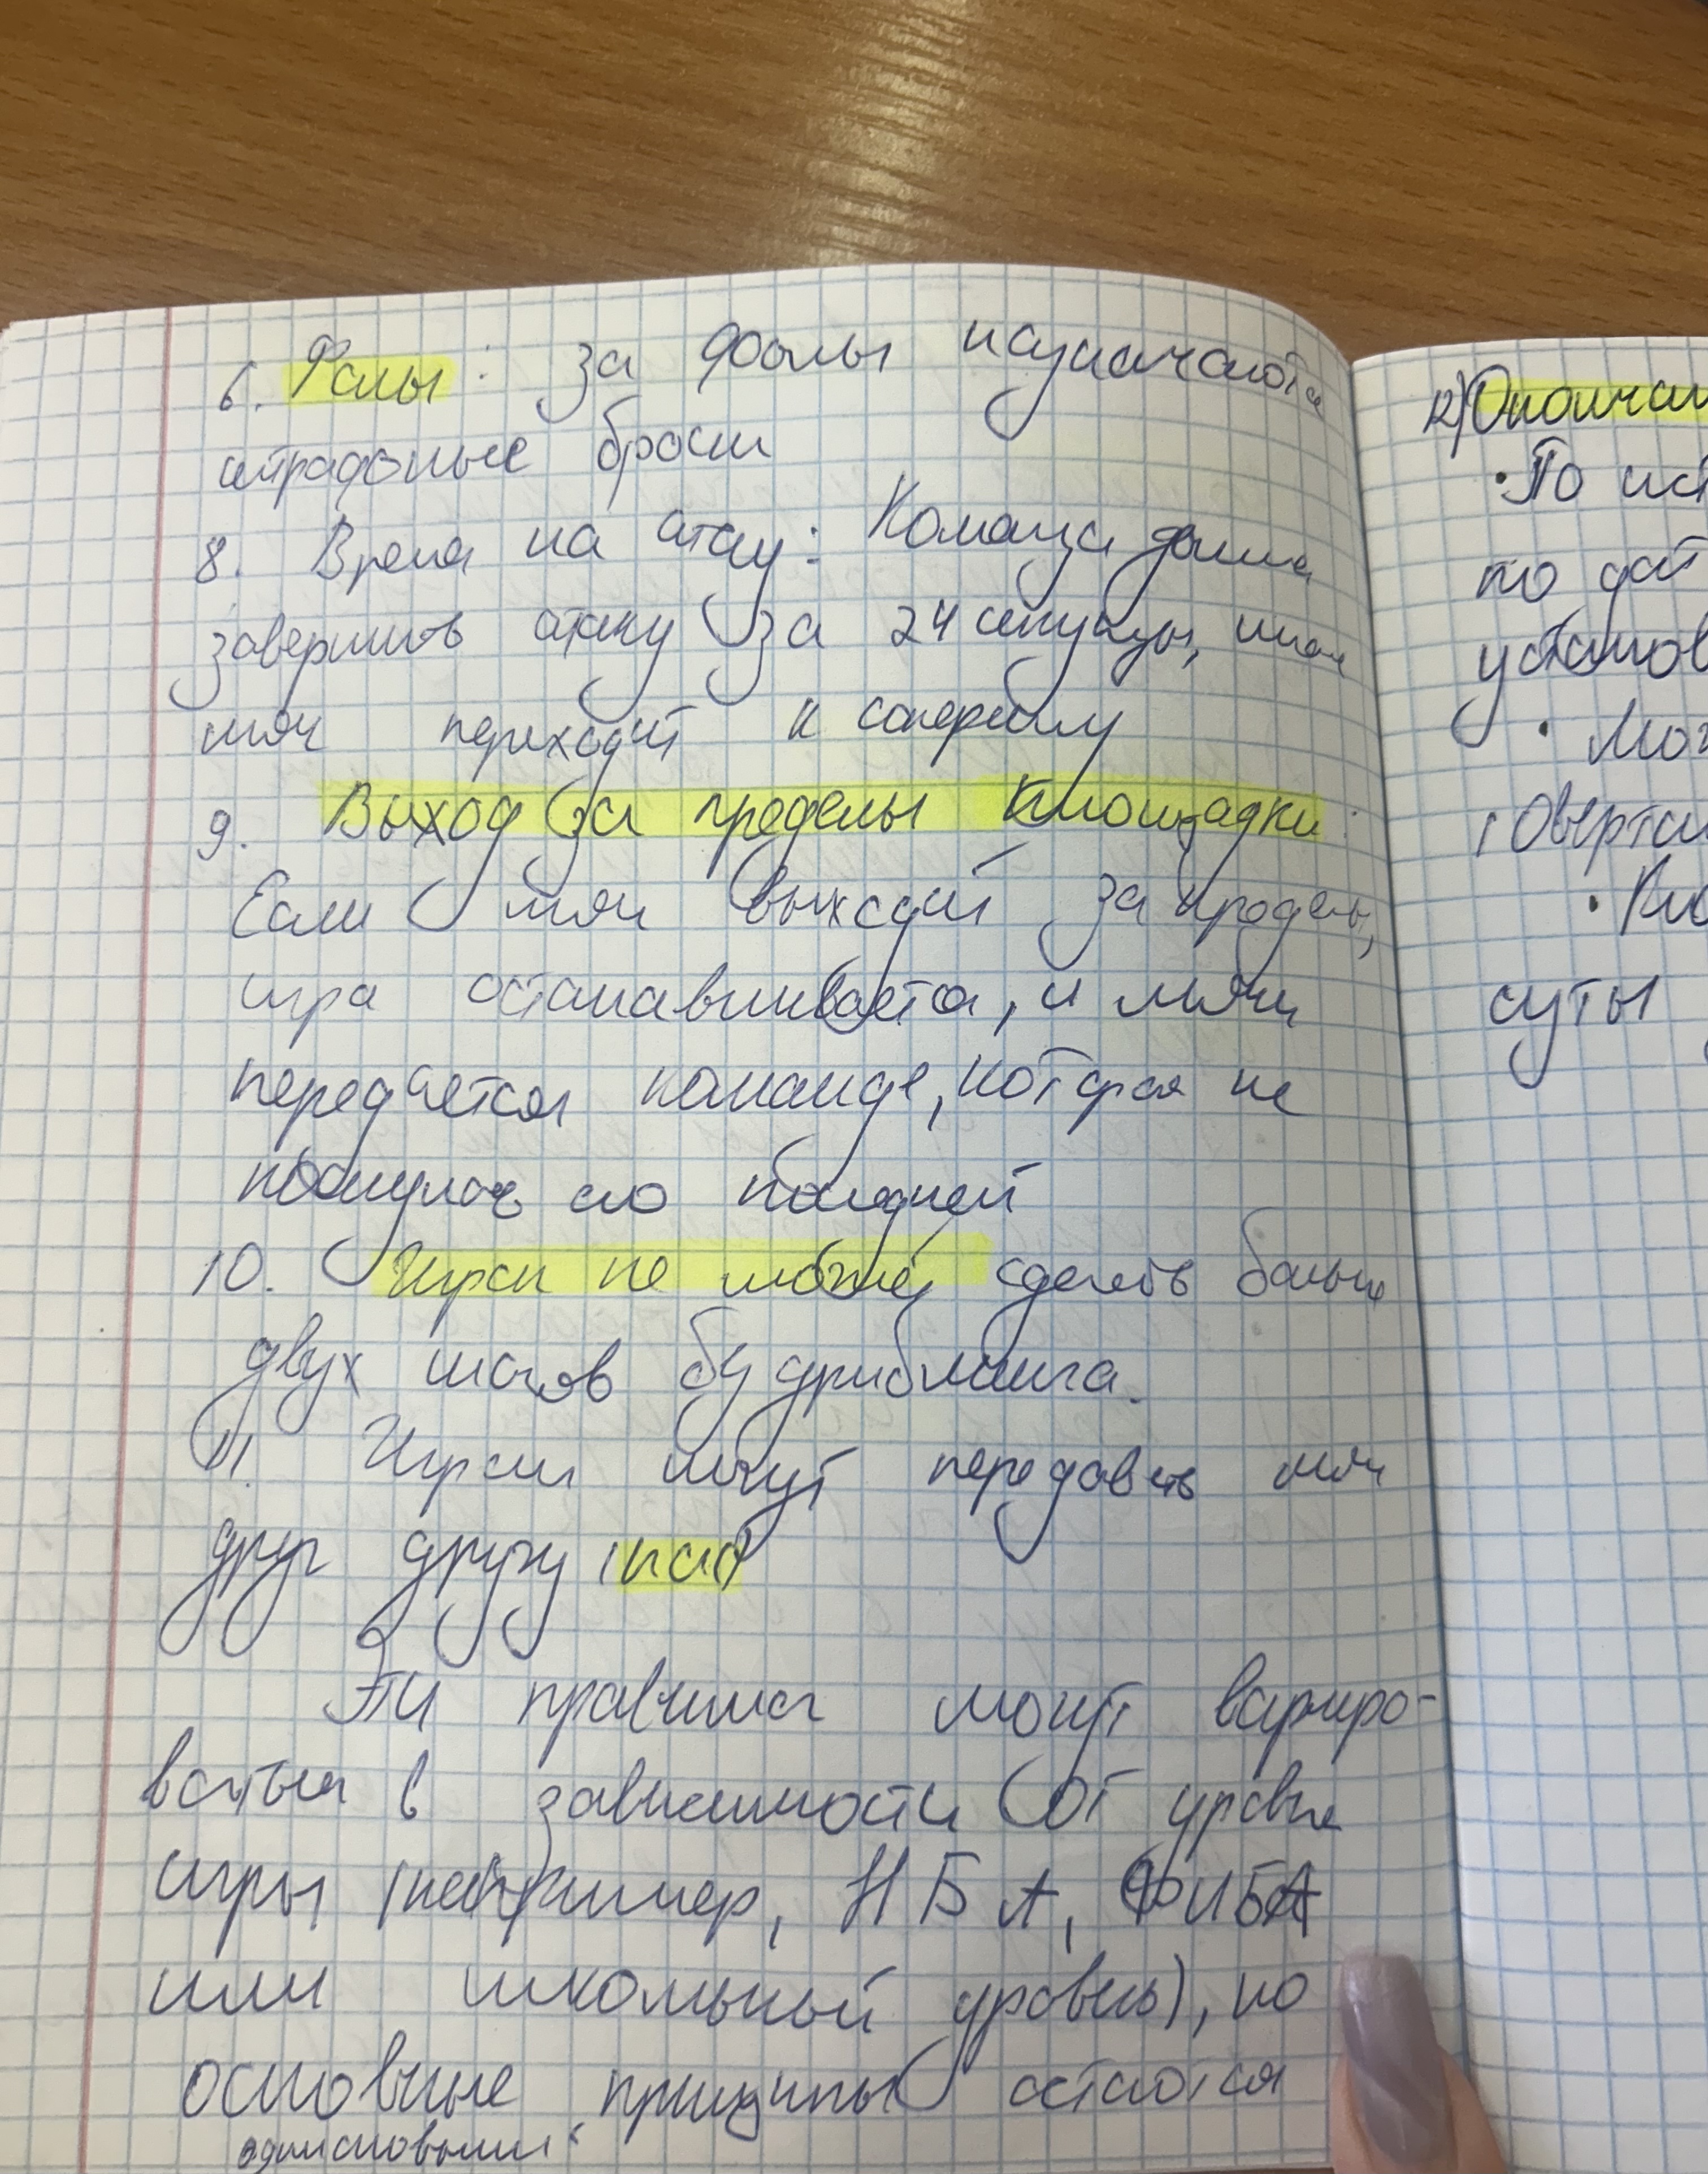 6. Фолы: за фолы назначаются
штрафные броски
8. Время на атаку: Команда должна
завершить атаку за 24 секунды, иначе
мяч переходит к сопернику
9. Выход за пределы площадки:
Если мяч выходит за пределы,
игра останавливается, и мяч
передается команде, которая не
коснулась его последней
10. Игрок не может сделать больше
двух шагов без дриблинга.
11. Игроки могут передавать мяч
друг другу (пас)
Эти правила могут варьиро-
ваться в зависимости от уровня
игры (например, НБА, ФИБА
или школьный уровень), но
основные принципы остаются
одинаковыми.
12) Окончан
• По ист
по
установ
• Мож
(Овертай
суты